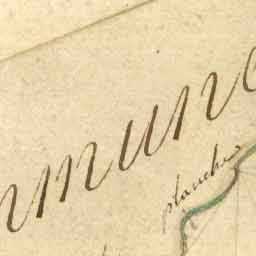 mmune
planches